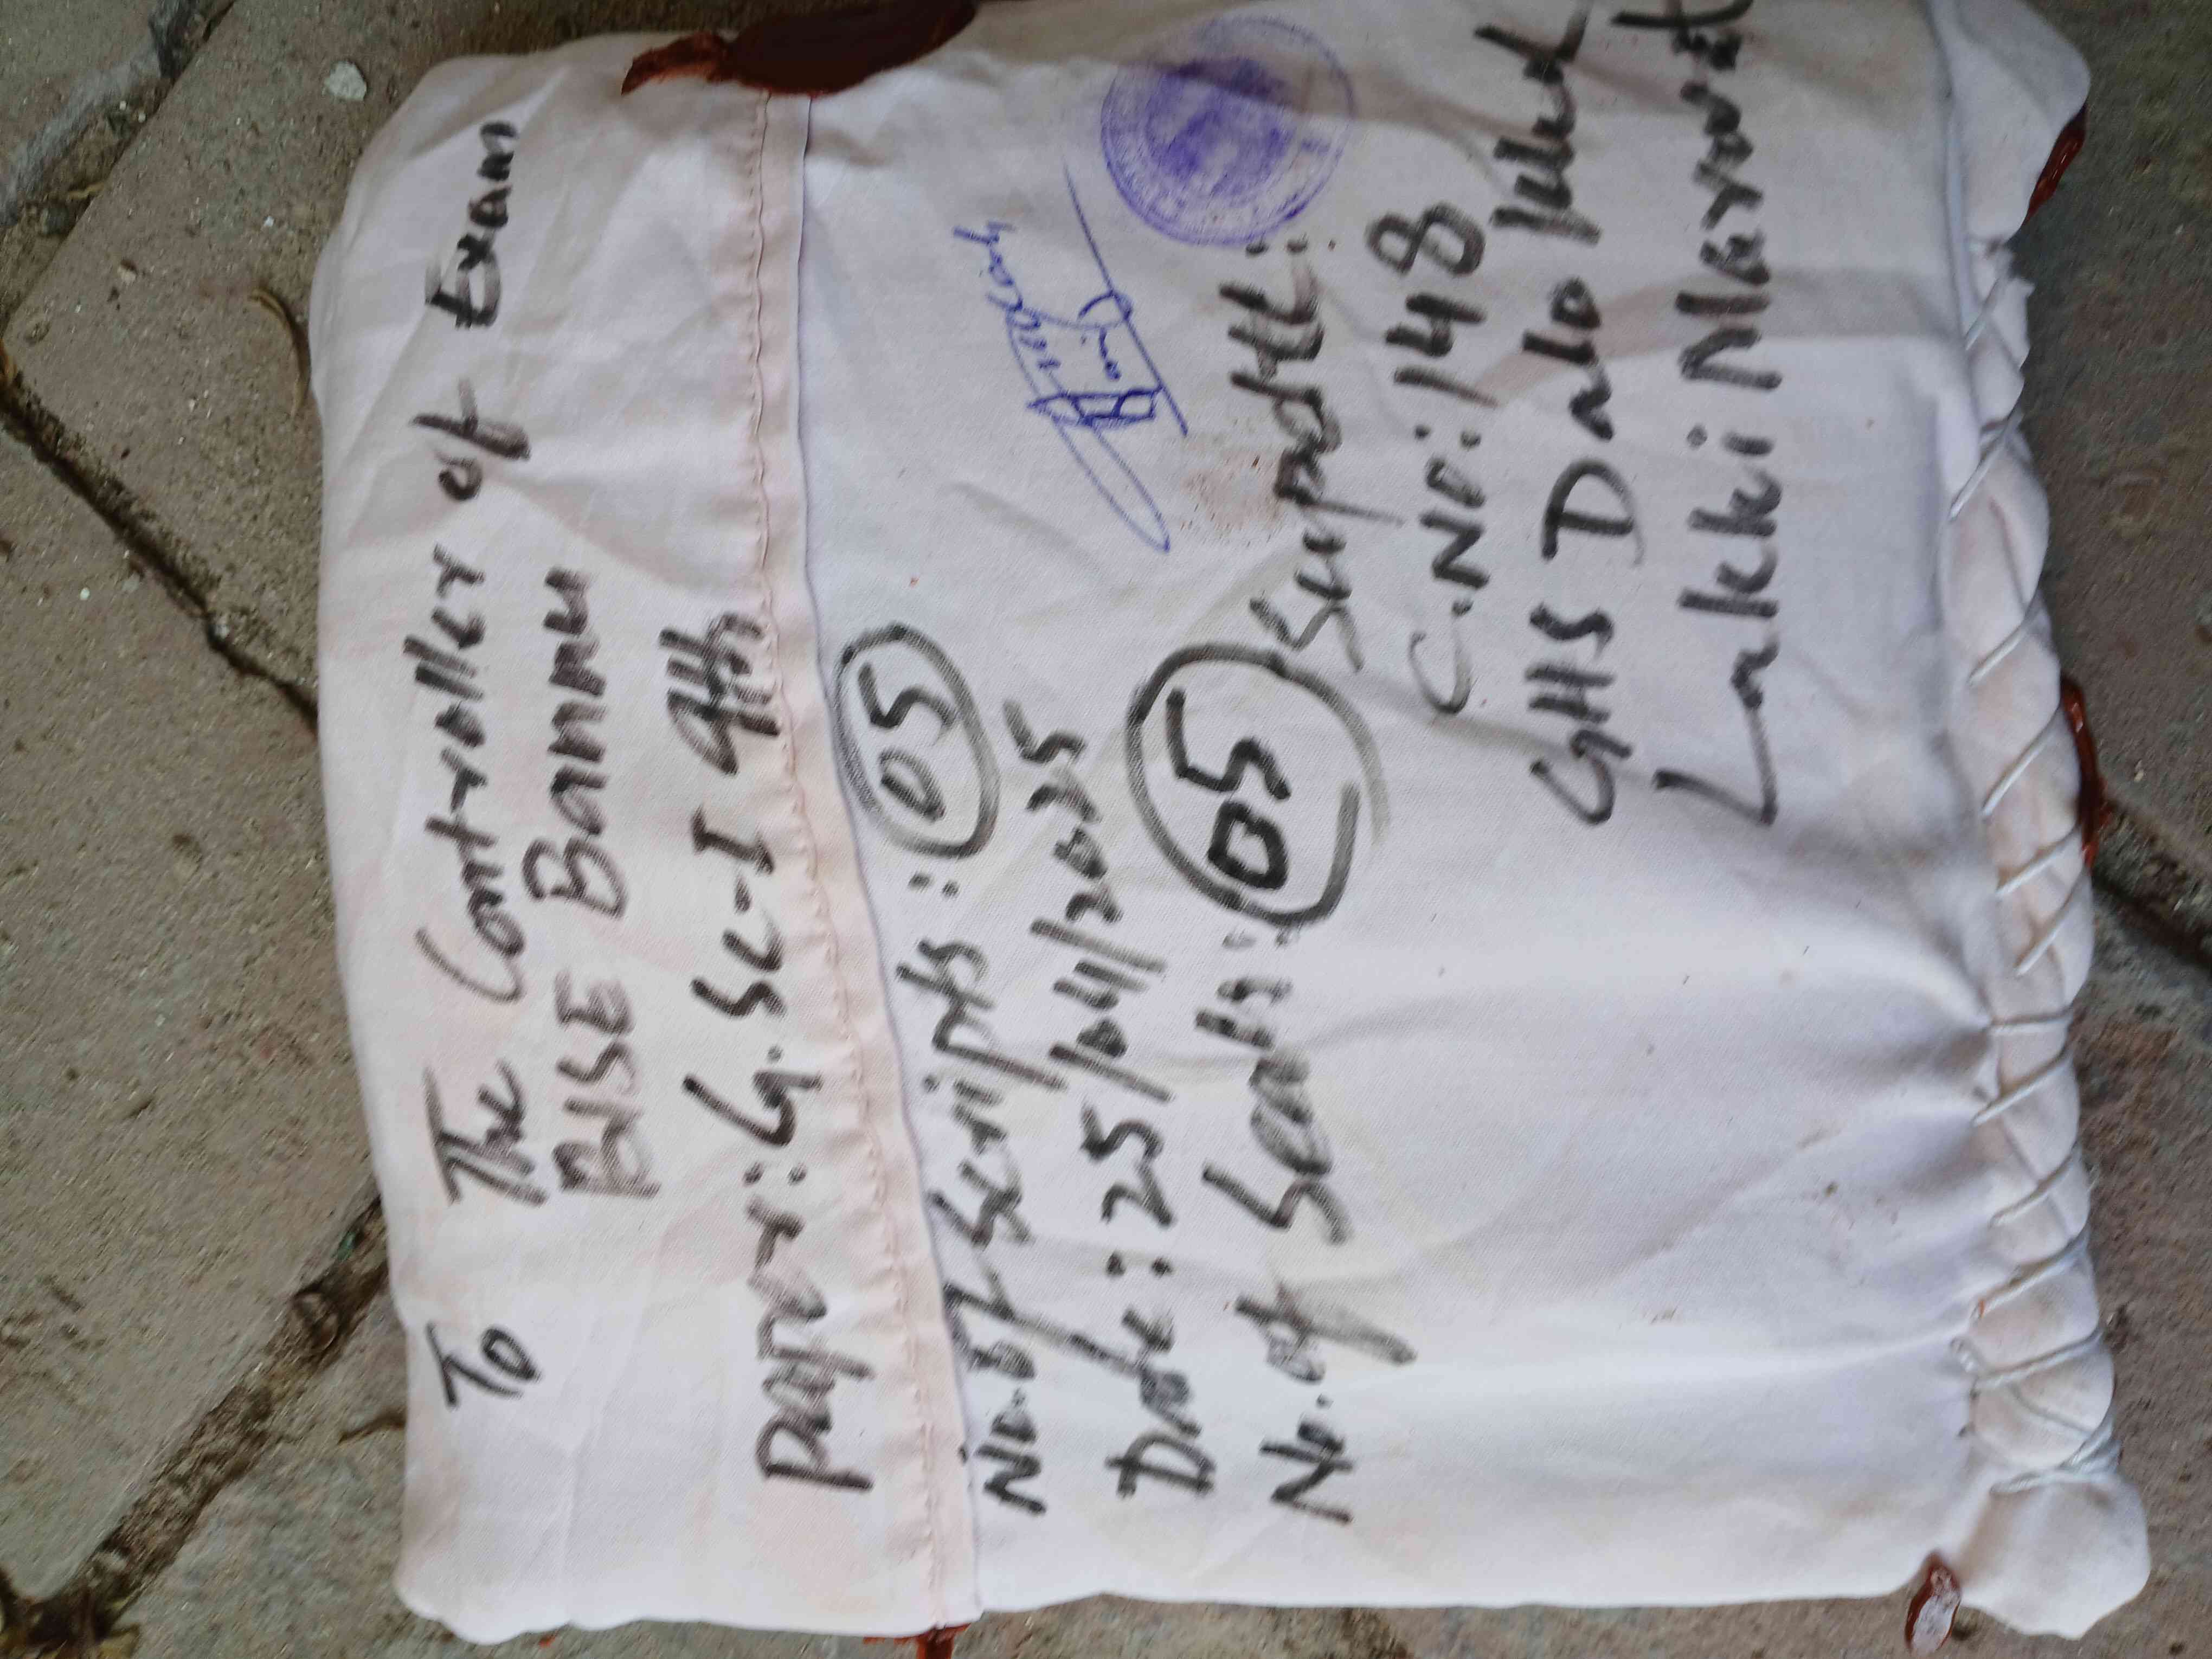 To The Controller of Exam
BISE Bannu
Paper: G.Sc-I 9th
No.of Scripts: 05
Date: 25/04/2025
No. of Seals: 05
Supdtt:
C.No: 148
GHS Dallo Khel
Lakki Marwat